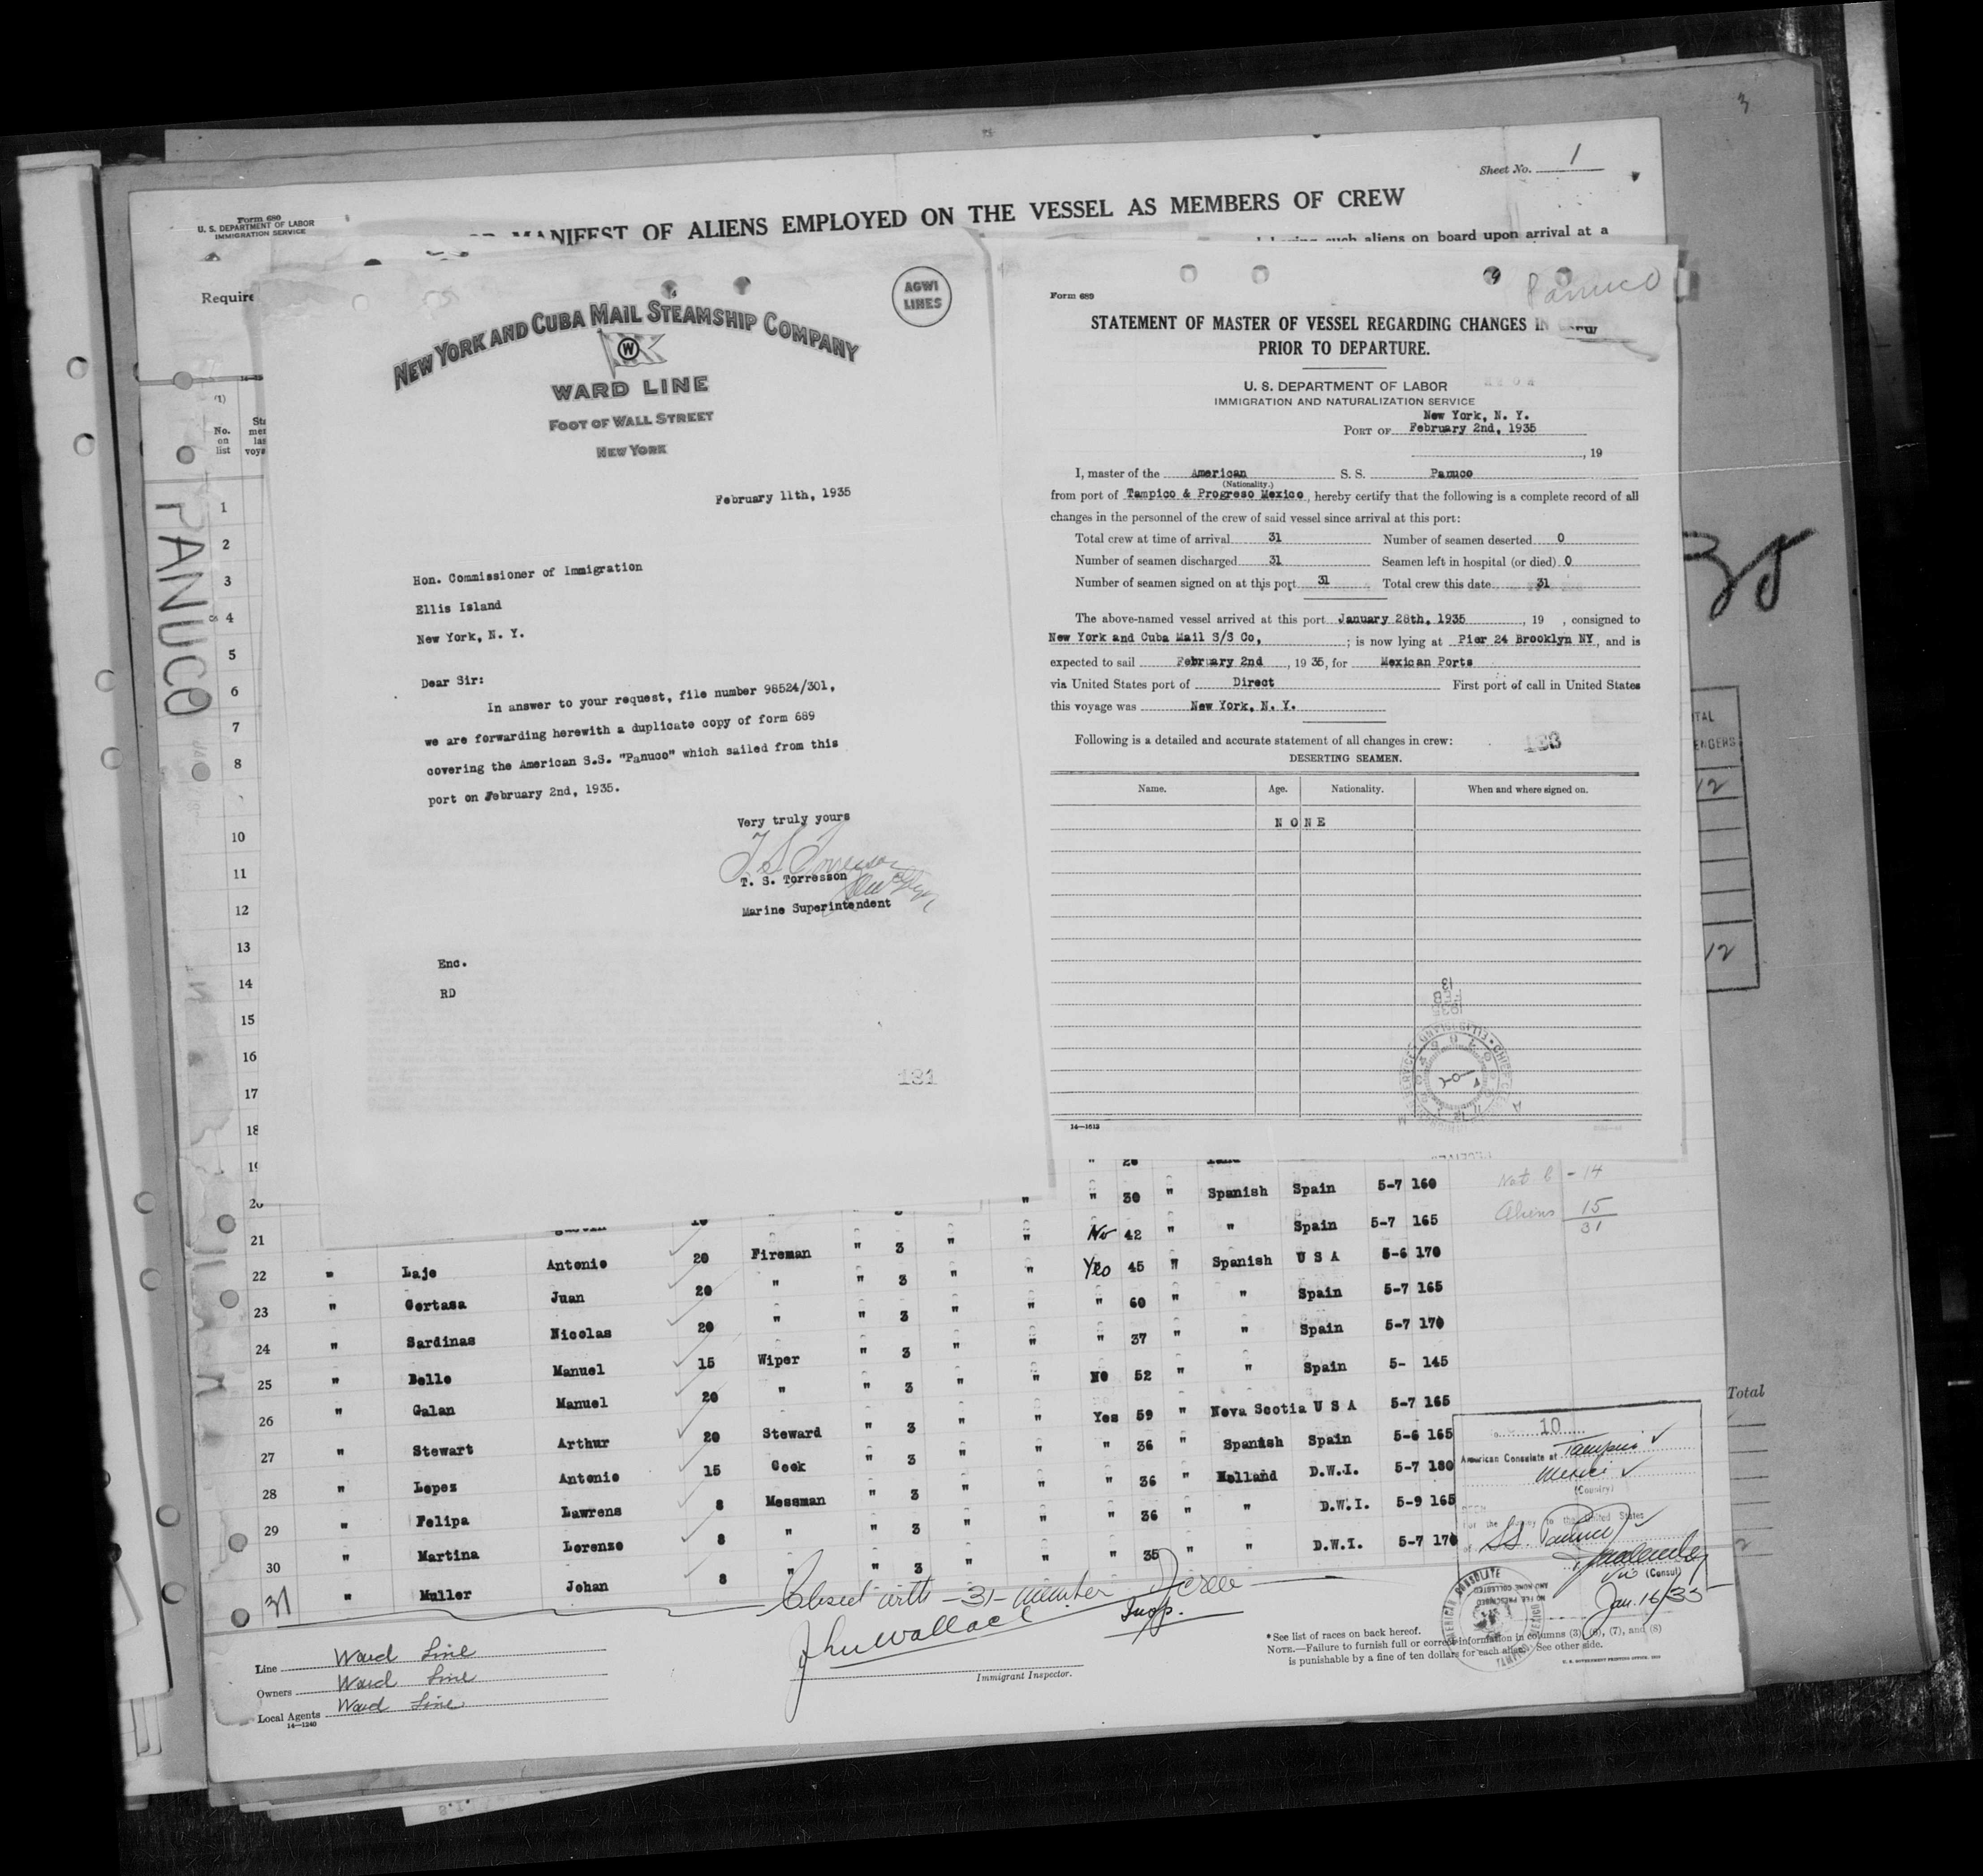 3
Sheet No. 1
Form 680
U. S. DEPARTMENT OF LABOR
IMMIGRATION SERVICE
MANIFEST OF ALIENS EMPLOYED ON THE VESSEL AS MEMBERS OF CREW
such aliens on board upon arrival at a
Require
(1)
No. on list
PANUCO
NEW YORK AND CUBA MAIL STEAMSHIP COMPANY
AGWI LINES
W
WARD LINE
FOOT OF WALL STREET
NEW YORK
February 11th, 1935
Hon. Commissioner of Immigration
Ellis Island
New York, N. Y.
Dear Sir:
In answer to your request, file number 98524/301,
we are forwarding herewith a duplicate copy of form 689
covering the American S.S. "Panuco" which sailed from this
port on February 2nd, 1935.
Very truly yours
T. S. Torresson
T. S. Torresson
Marine Superintendent
Enc.
RD
131
Panuco
Form 689
STATEMENT OF MASTER OF VESSEL REGARDING CHANGES IN CREW
PRIOR TO DEPARTURE.
U. S. DEPARTMENT OF LABOR
IMMIGRATION AND NATURALIZATION SERVICE
New York, N. Y.
PORT OF February 2nd, 1935
, 19
I, master of the American S. S. Panuco
(Nationality.)
from port of Tampico & Progreso Mexico, hereby certify that the following is a complete record of all
changes in the personnel of the crew of said vessel since arrival at this port:
Total crew at time of arrival 31 Number of seamen deserted 0
Number of seamen discharged 31 Seamen left in hospital (or died) 0
Number of seamen signed on at this port 31 Total crew this date 31
The above-named vessel arrived at this port January 28th, 1935, 19 , consigned to
New York and Cuba Mail S/S Co, ; is now lying at Pier 24 Brooklyn NY, and is
expected to sail February 2nd, 19 35, for Mexican Ports
via United States port of Direct First port of call in United States
this voyage was New York, N. Y.
Following is a detailed and accurate statement of all changes in crew:
DESERTING SEAMEN.
Name. Age. Nationality. When and where signed on.
NONE
1935 FEB 13
14—1613
12
12
Total
1
2
3
4
5
6
7
8
10
11
12
13
14
15
16
17
18
19
20
" " 30 " Spanish Spain 5-7 160
Not b - 14
Aliens 15
31
21 No 42 " " Spain 5-7 165
22 " Laje Antonio 20 Fireman " 3 " " Yes 45 " Spanish U S A 5-6 170
23 " Cortasa Juan 20 " " 3 " " " 60 " " Spain 5-7 165
24 " Sardinas Nicolas 20 " " 3 " " " 37 " " Spain 5-7 170
25 " Bello Manuel 15 Wiper " 3 " " No 52 " " Spain 5- 145
26 " Galan Manuel 20 " " 3 " " Yes 59 " Nova Scotia U S A 5-7 165
27 " Stewart Arthur 20 Steward " 3 " " " 36 " Spanish Spain 5-6 165
28 " Lopez Antonio 15 Cook " 3 " " " 36 " Holland D.W.I. 5-7 180
29 " Felipa Lawrens 8 Messman " 3 " " " 36 " " D.W.I. 5-9 165
30 " Martina Lorenzo 8 " " 3 " " " 35 " " D.W.I. 5-7 170
31 " Muller Johan 8 " 3
Closed with -31- member of crew
Jhn Wallace Insp.
Immigrant Inspector.
10
American Consulate at Tampico
Mexico
(Country)
For the journey to the United States
of SS. Panuco
Vice (Consul)
Jan. 16/35
AMERICAN CONSULATE
TAMPICO MEXICO
NO FEE PRESCRIBED
AND NONE COLLECTED
Line Ward Line
Owners Ward Line
Local Agents Ward Line
14—1240
*See list of races on back hereof.
NOTE.—Failure to furnish full or correct information in columns (3), (6), (7), and (8)
is punishable by a fine of ten dollars for each alien. See other side.
U. S. GOVERNMENT PRINTING OFFICE